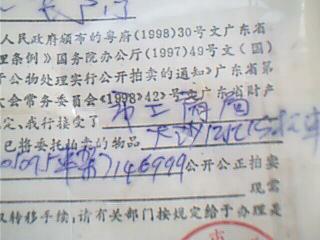 人民政府颁布的粤府(1998)30号文广东省
理条例》国务院办公厅(1997)49号文(国)
于公物处理实行公开拍卖的通知》广东省第
大会常务委员会<1998>42号文广东省财产
定、我行接受了 市工商局
已将委托拍卖的物品
146999公开公正拍卖
现需
权转移手续,请有关部门按规定给于办理是